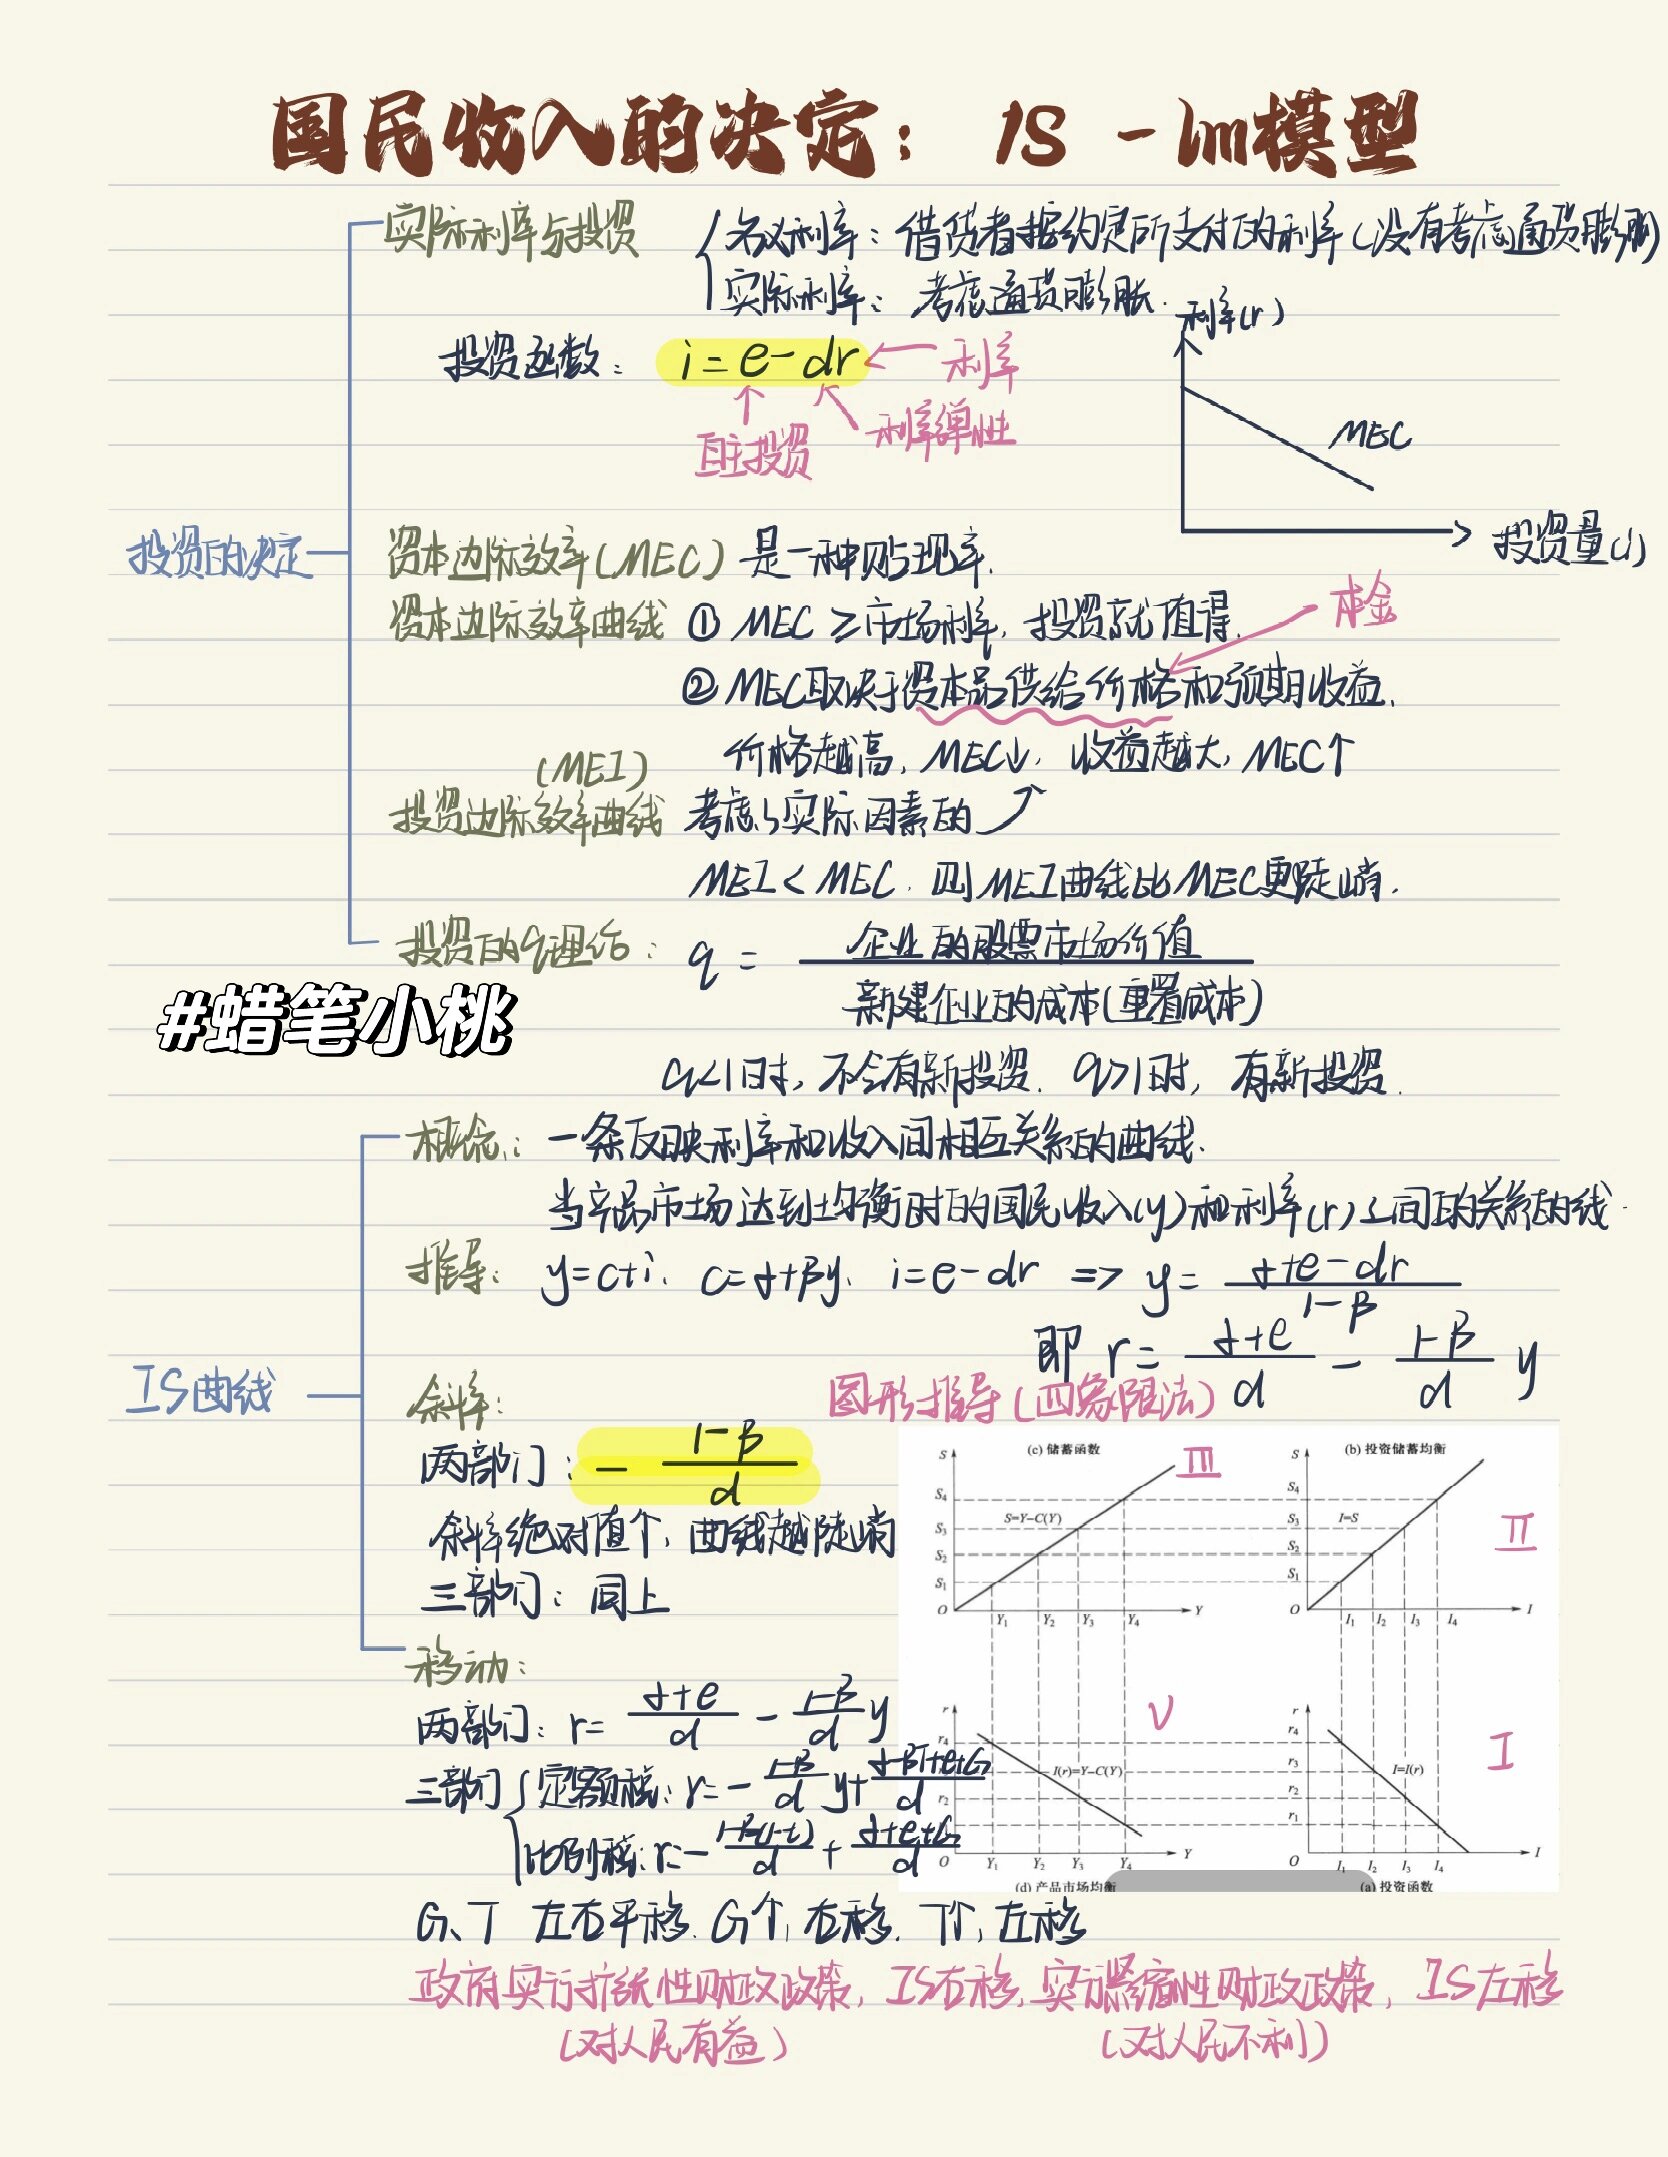 国民收入的决定：IS-lm模型
实际利率与投资
名义利率：借贷者按约定所支付的利率(没有考虑通货膨胀)
实际利率：考虑通货膨胀.
投资函数：i=e-dr ← 利率
自主投资 利率弹性
利率(r)
MEC
投资量(i)
投资的决定
资本边际效率(MEC) 是一种贴现率.
资本边际效率曲线 ① MEC≥市场利率,投资就值得.
本金
② MEC取决于资本品供给价格和预期收益.
价格越高,MEC↓,收益越大,MEC↑
(MEI)
投资边际效率曲线 考虑实际因素的
MEI<MEC.则MEI曲线比MEC更陡峭.
投资的q理论：q= 企业的股票市场价值
新建企业的成本(重置成本)
#蜡笔小桃
q<1时,不会有新投资.q>1时,有新投资.
概念：一条反映利率和收入间相互关系的曲线.
当产品市场达到均衡时的国民收入(y)和利率(r)之间的关系的线.
推导：y=c+i. c=α+βy. i=e-dr => y= α+e-dr / 1-β
即 r= α+e / d - 1-β / d y
IS曲线
斜率：
图形推导(四象限法)
两部门：- 1-β / d
斜率绝对值↑,曲线越陡峭
三部门：同上
(c) 储蓄函数 III
S
S4
S3
S2
S1
S=Y-C(Y)
O Y1 Y2 Y3 Y4 Y
(b) 投资储蓄均衡
S
S4
S3
S2
S1
I=S
II
O I1 I2 I3 I4 I
移动：
两部门：r= α+e / d - 1-β / d y
三部门 定额税：r=- 1-β / d y+ α-βT+e+G / d
比例税：r=- 1-β(1-t) / d + α+e+G / d
V
r
r4
r2
I(r)=Y-C(Y)
O Y1 Y2 Y3 Y4 Y
(d) 产品市场均衡
I
r
r4
r3
r2
r1
I=I(r)
O I1 I2 I3 I4 I
(a) 投资函数
G、T 左右平移.G↑,右移.T↑,左移
政府实行扩张性财政政策,IS右移,实行紧缩性财政政策,IS左移
(对人民有益) (对人民不利)